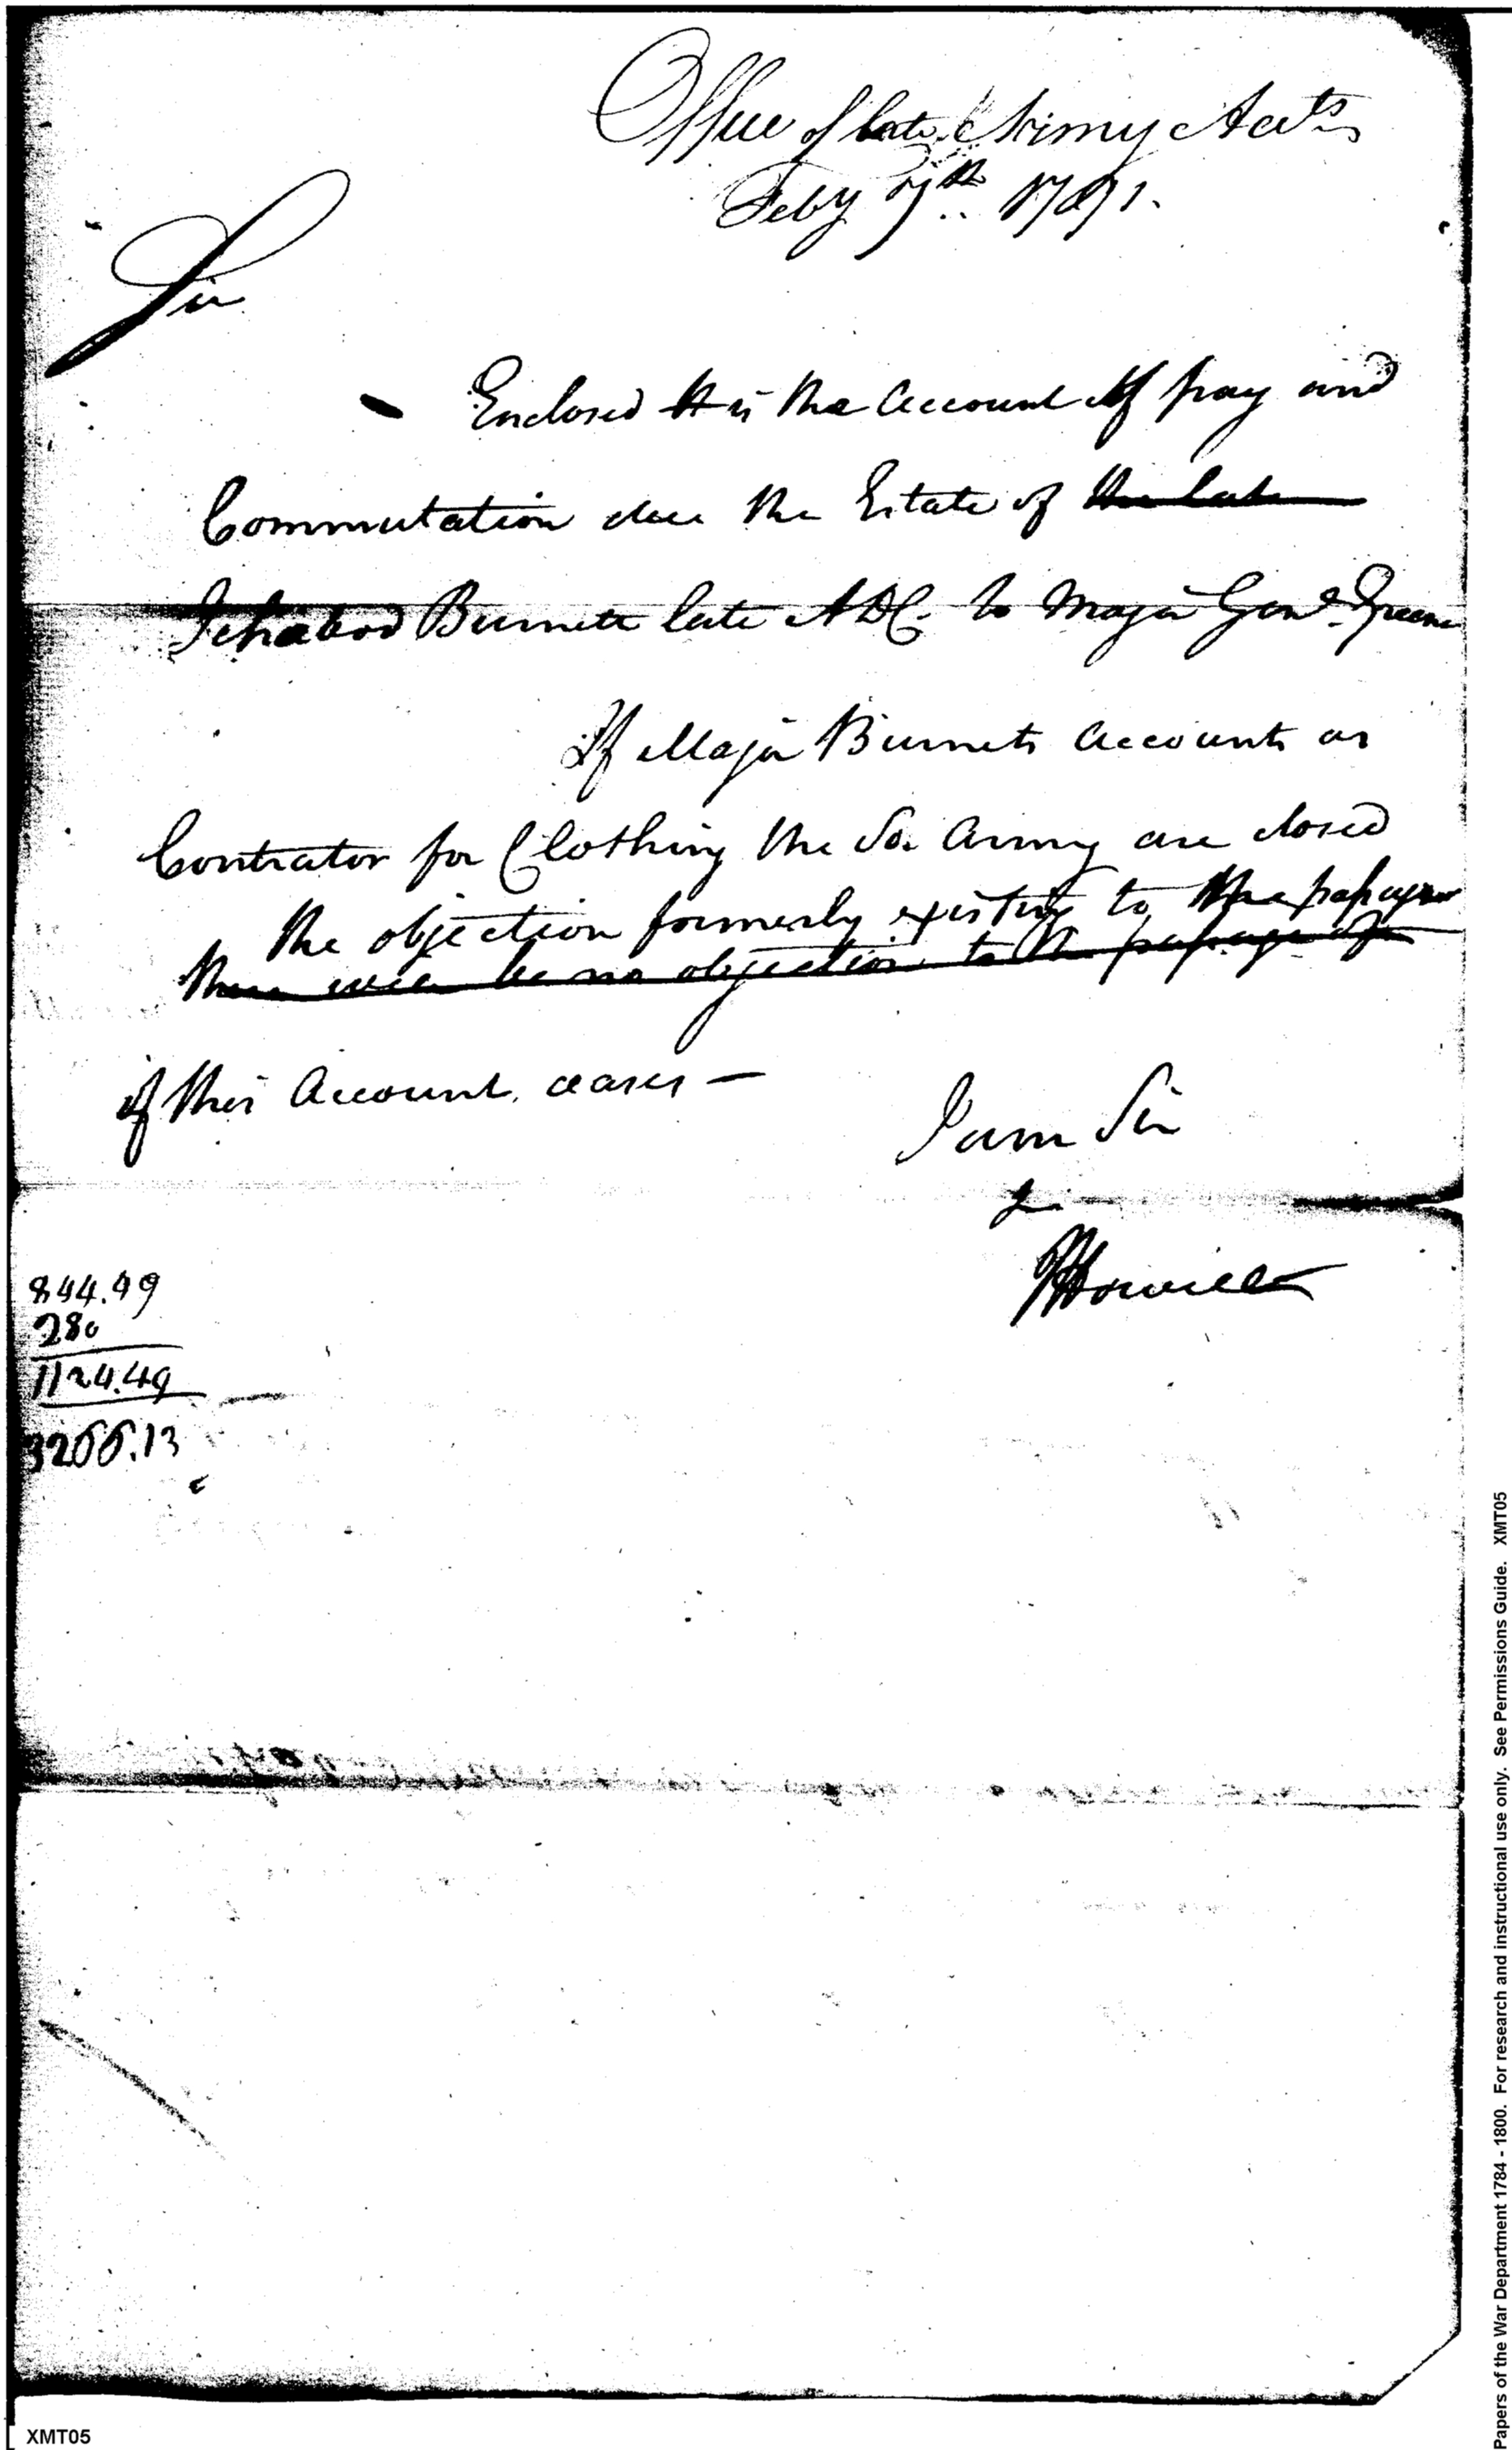 Office of late Army Accts
Feby 7th 1791.
Sir
Enclosed is the Account of pay and
Commutation due the Estate of the late
Ichabod Burnett late ADC. to Major Genl. Greene
If Major Burnets Accounts as
Contrator for Clothing the So. Army are closed
the objection formerly existing to the passage
there will be no objection to the passage of
of this Account ceases —
I am Sir
&
JHowell
844.49
280
1124.49
3266.13
XMT05
Papers of the War Department 1784 - 1800. For research and instructional use only. See Permissions Guide. XMT05